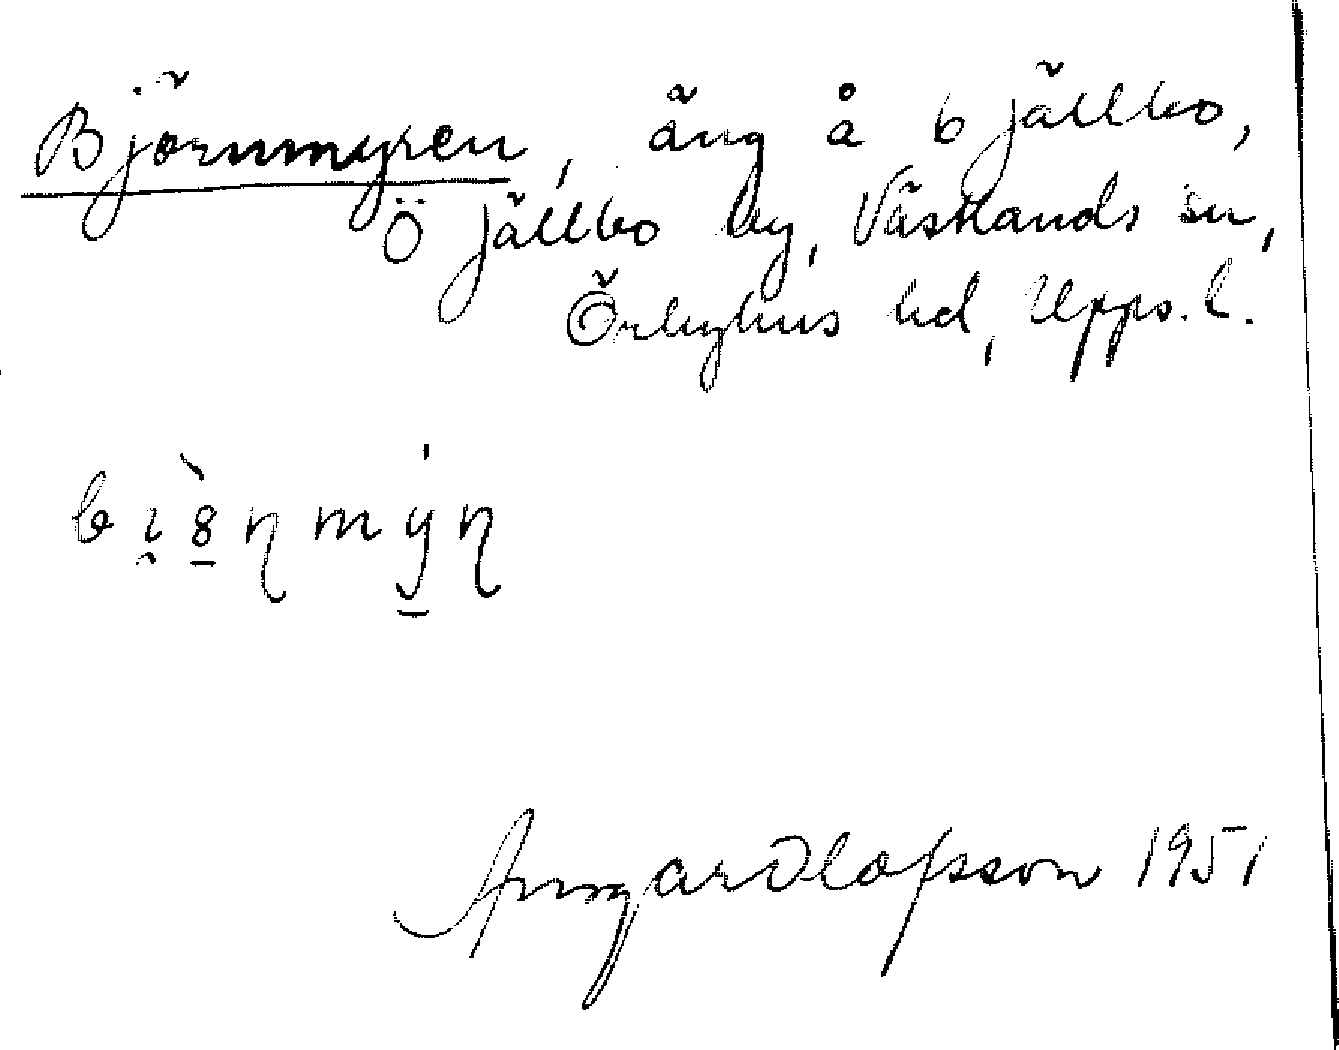 Björnmyren, äng å 6 jällbo,
Ö jällbo by, Västlands sn,
Örbyhus hd, Upps. l.
Ansgar Olofsson 1951